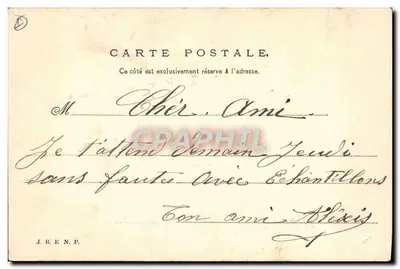 CARTE POSTALE.
Ce côté est exclusivement réservé à l'adresse.
M Chér Ami
CPARAPHIL
Je t'attend demain Jeudi
sans fautes avec Echantillons
Ton ami Alexis
J. B. E. N. P.